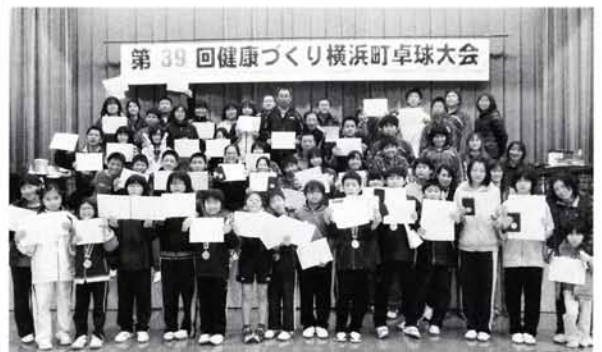 第39回健康づくり横浜町卓球大会